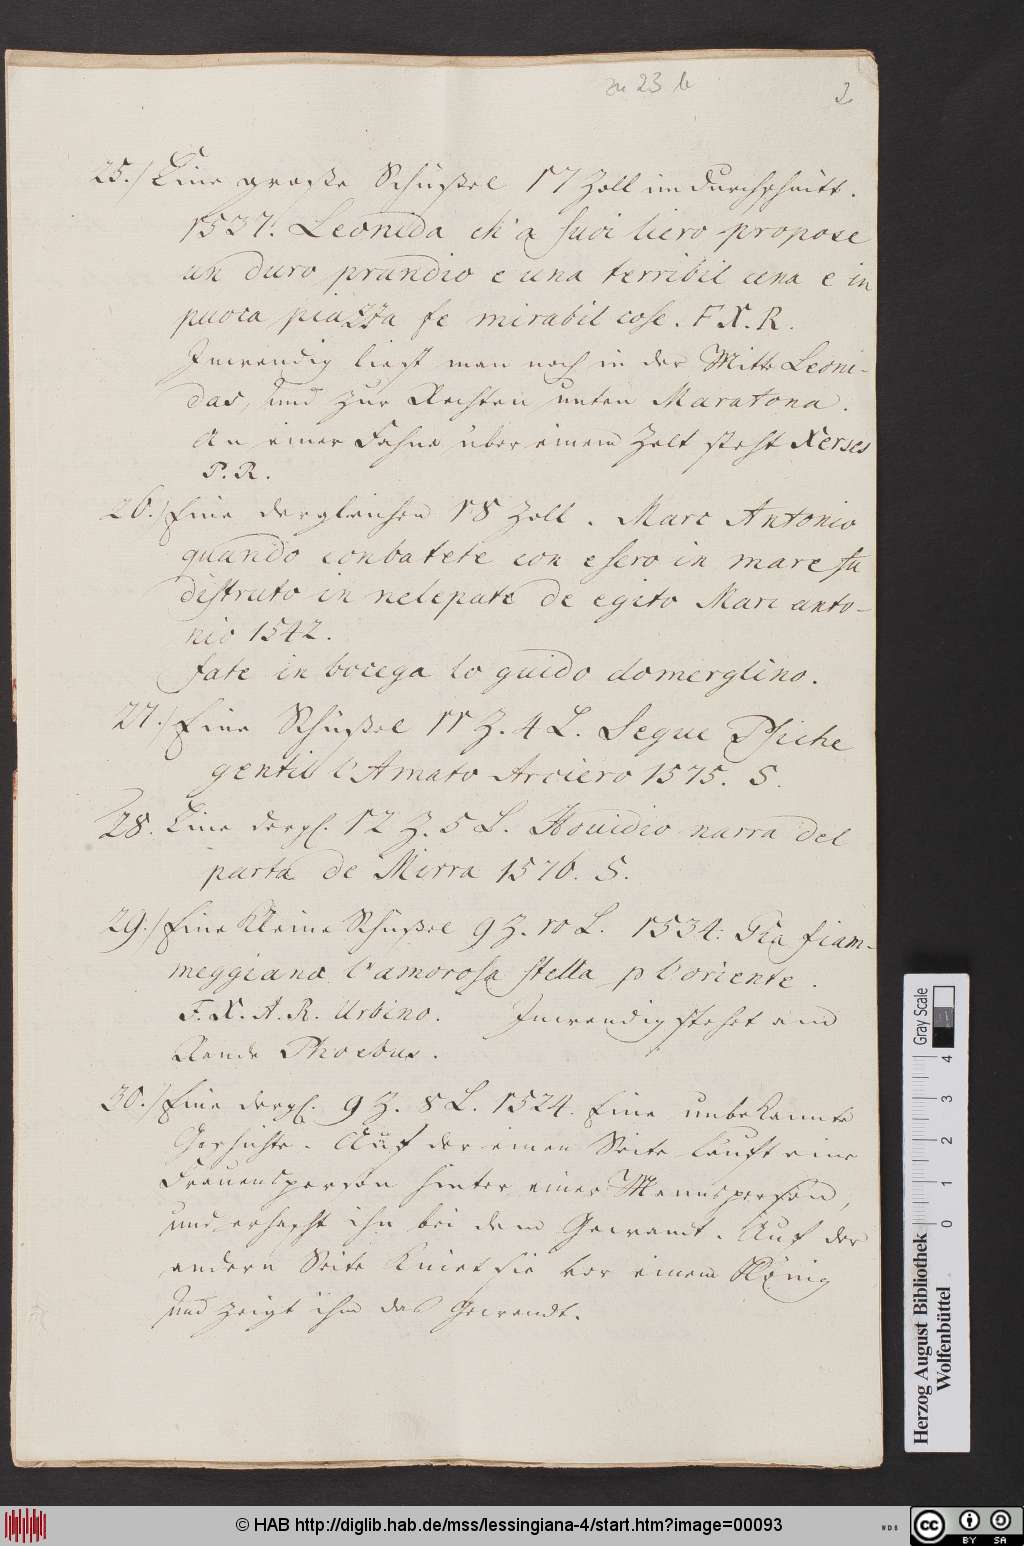 zu 23 b
2
25.) Eine große Schüßel 17 Zoll im Durchschnitt.
1537. Leonida ch'a suoi liero propose
un duro prandio e una terribil cena e in
puoca piazza fe mirabil cose. F. X. R.
Inwendig liest man noch in der Mitte Leoni-
das, und zur Rechten unten Maratona.
An einer Fahne über einem Zelt steht Xerses
P. R.
26.) Eine dergleichen 18 Zoll. Marc Antonio
quando conbatete con esero in mare fu
distruto in nelepate de egito Marc anto-
nio 1542.
fate in bocega lo guido domerglino.
27.) Eine Schüßel 11 Z. 4 L. Segue Psiche
gentil l'Amato Arciero 1575. S.
28. Eine dergl. 12 Z. 5 L. Hovidio narra del
parta de Mirra 1576. S.
29.) Eine kleine Schüßel 9 Z. 10 L. 1534. Gia fiam-
meggiana l'amorosa stella p l'oriente.
F. X. A. R. Urbino. Inwendig stehet am
Rande Phoebus.
30.) Eine dergl. 9 Z. 8 L. 1524. Eine unbekannte
Geschichte. Auf der einen Seite läuft eine
Frauensperson hinter einer Mannsperson,
und erhascht ihn bei dem Gewandt. Auf der
andern Seite kniet sie vor einem König
und zeigt ihm das Gewandt.
Herzog August Bibliothek
Wolfenbüttel
0 1 2 3 4
Gray Scale
© HAB http://diglib.hab.de/mss/lessingiana-4/start.htm?image=00093
WDB
cc
BY SA